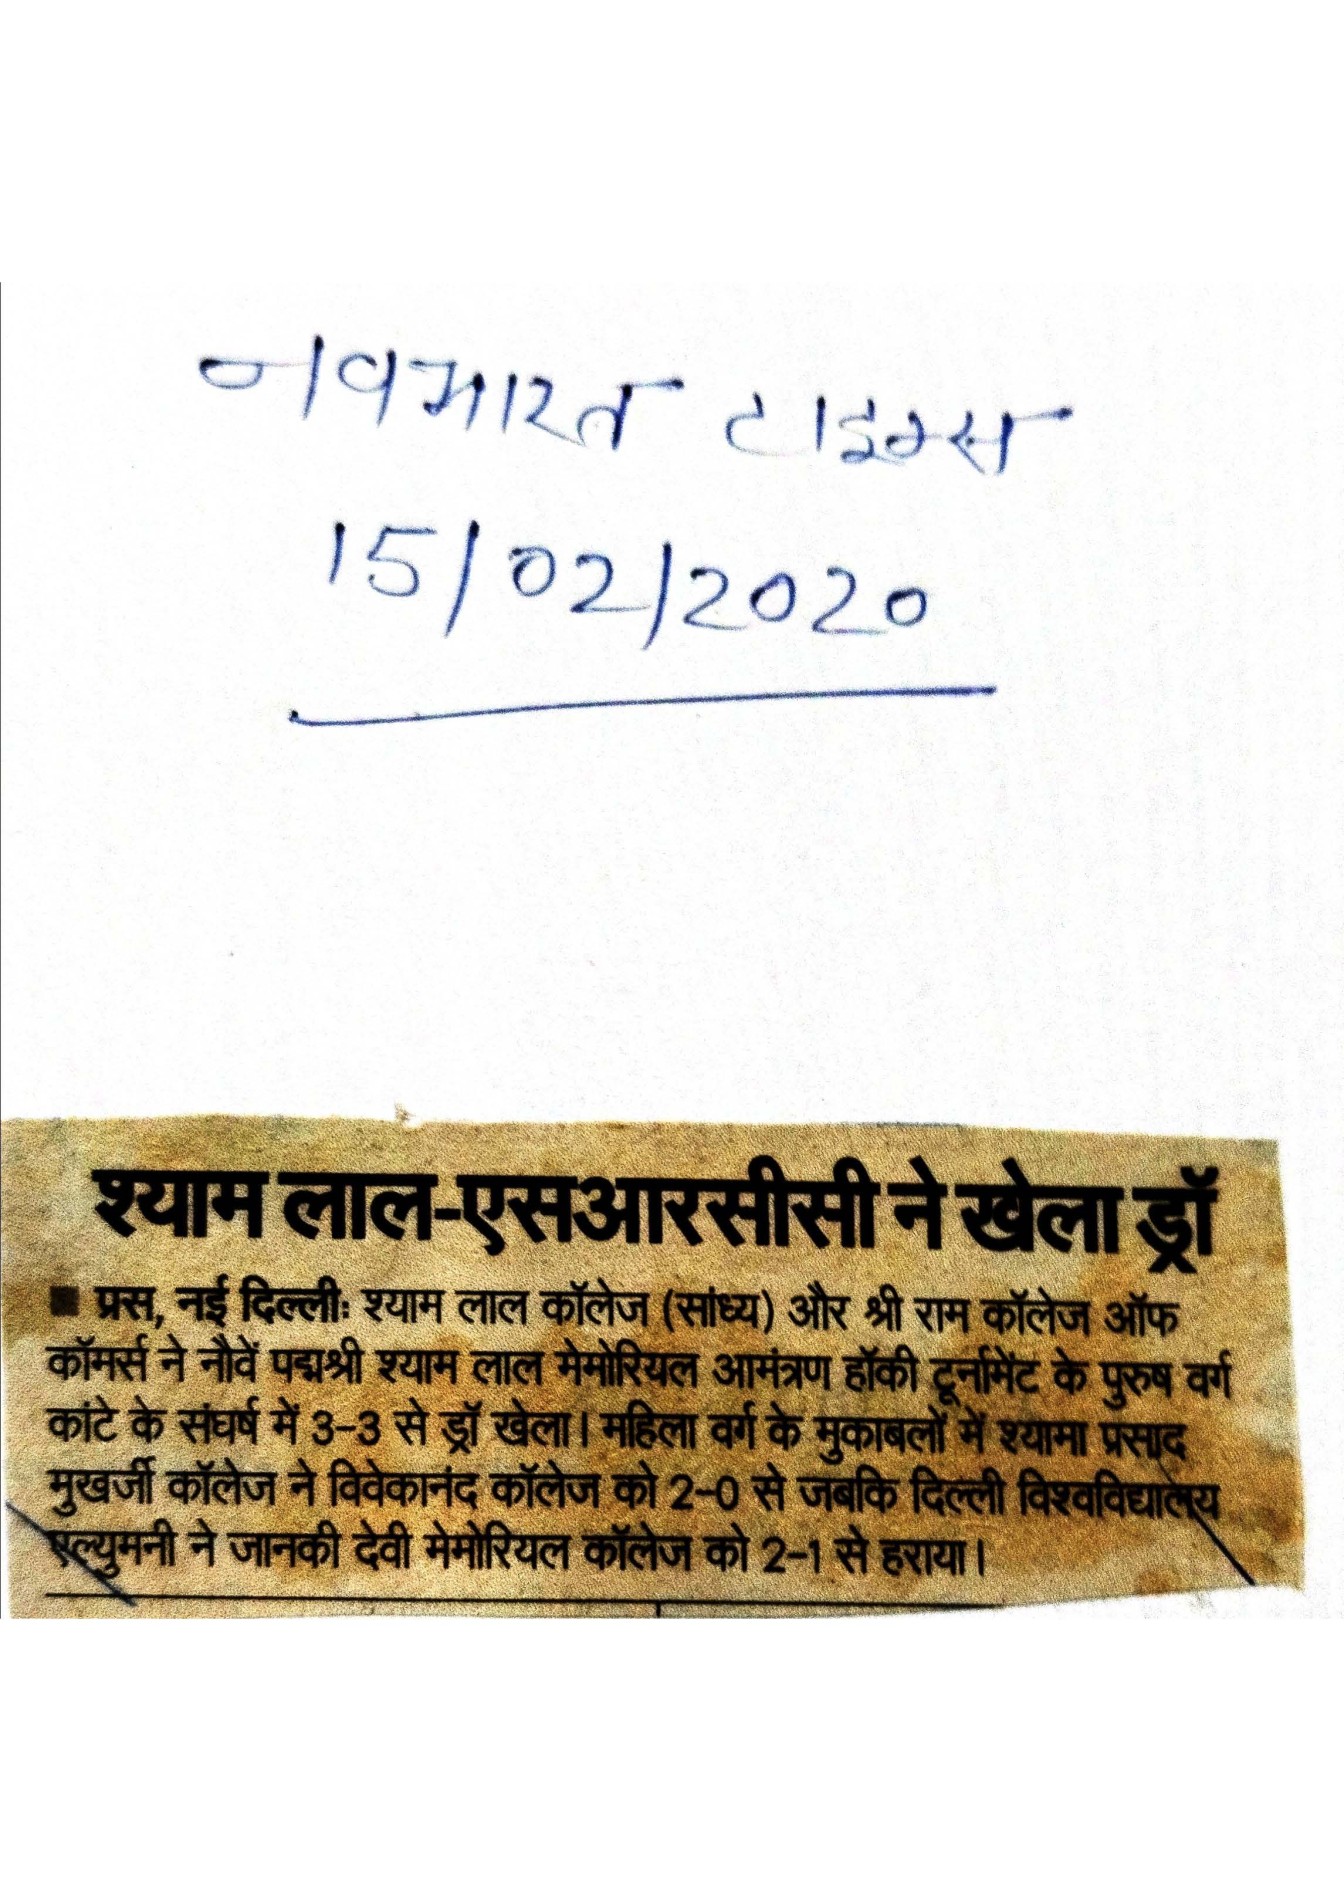 नवभारत टाइम्स
15/02/2020
श्याम लाल-एसआरसीसी ने खेला ड्रॉ
■ प्रस, नई दिल्ली: श्याम लाल कॉलेज (सांध्य) और श्री राम कॉलेज ऑफ
कॉमर्स ने नौवें पद्मश्री श्याम लाल मेमोरियल आमंत्रण हॉकी टूर्नामेंट के पुरुष वर्ग
कांटे के संघर्ष में 3-3 से ड्रॉ खेला। महिला वर्ग के मुकाबलों में श्यामा प्रसाद
मुखर्जी कॉलेज ने विवेकानंद कॉलेज को 2-0 से जबकि दिल्ली विश्वविद्यालय
एल्युमनी ने जानकी देवी मेमोरियल कॉलेज को 2-1 से हराया।